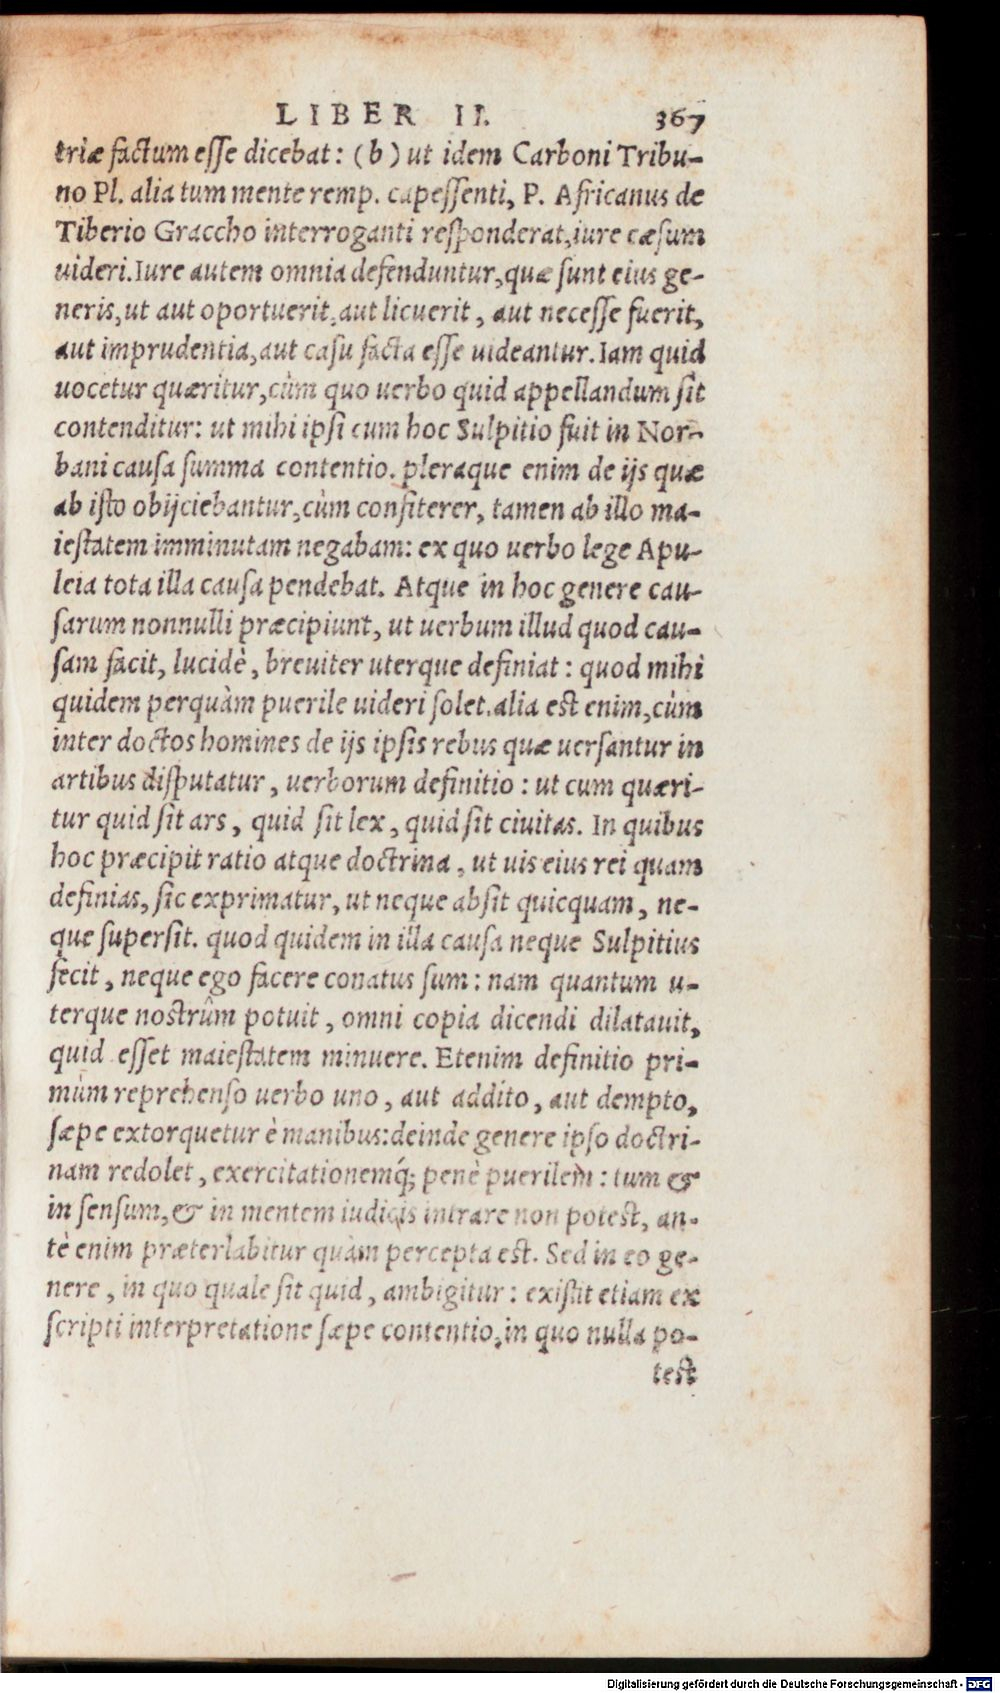 LIBER II. 367
triæ factum esse dicebat: (b) ut idem Carboni Tribu-
no Pl. alia tum mente remp. capessenti, P. Africanus de
Tiberio Graccho interroganti responderat, iure cæsum
uideri. Iure autem omnia defenduntur, quæ sunt eius ge-
neris, ut aut oportuerit, aut licuerit, aut necesse fuerit,
aut imprudentia, aut casu facta esse uideantur. Iam quid
uocetur quæritur, cùm quo uerbo quid appellandum sit
contenditur: ut mihi ipsi cum hoc Sulpitio fuit in Nor-
bani causa summa contentio. pleraque enim de ijs quæ
ab isto obijciebantur, cùm confiterer, tamen ab illo ma-
iestatem imminutam negabam: ex quo uerbo lege Apu-
leia tota illa causa pendebat. Atque in hoc genere cau-
sarum nonnulli præcipiunt, ut uerbum illud quod cau-
sam facit, lucidè, breuiter uterque definiat: quod mihi
quidem perquàm puerile uideri solet. alia est enim, cùm
inter doctos homines de ijs ipsis rebus quæ uersantur in
artibus disputatur, uerborum definitio: ut cum quæri-
tur quid sit ars, quid sit lex, quid sit ciuitas. In quibus
hoc præcipit ratio atque doctrina, ut uis eius rei quam
definias, sic exprimatur, ut neque absit quicquam, ne-
que supersit. quod quidem in illa causa neque Sulpitius
fecit, neque ego facere conatus sum: nam quantum u-
terque nostrûm potuit, omni copia dicendi dilatauit,
quid esset maiestatem minuere. Etenim definitio pri-
mùm reprehenso uerbo uno, aut addito, aut dempto,
sæpe extorquetur è manibus: deinde genere ipso doctri-
nam redolet, exercitationemq́; penè puerilem: tum &
in sensum, & in mentem iudicis intrare non potest, an-
tè enim præterlabitur quàm percepta est. Sed in eo ge-
nere, in quo quale sit quid, ambigitur: existit etiam ex
scripti interpretatione sæpe contentio, in quo nulla po-
test
Digitalisierung gefördert durch die Deutsche Forschungsgemeinschaft - DFG